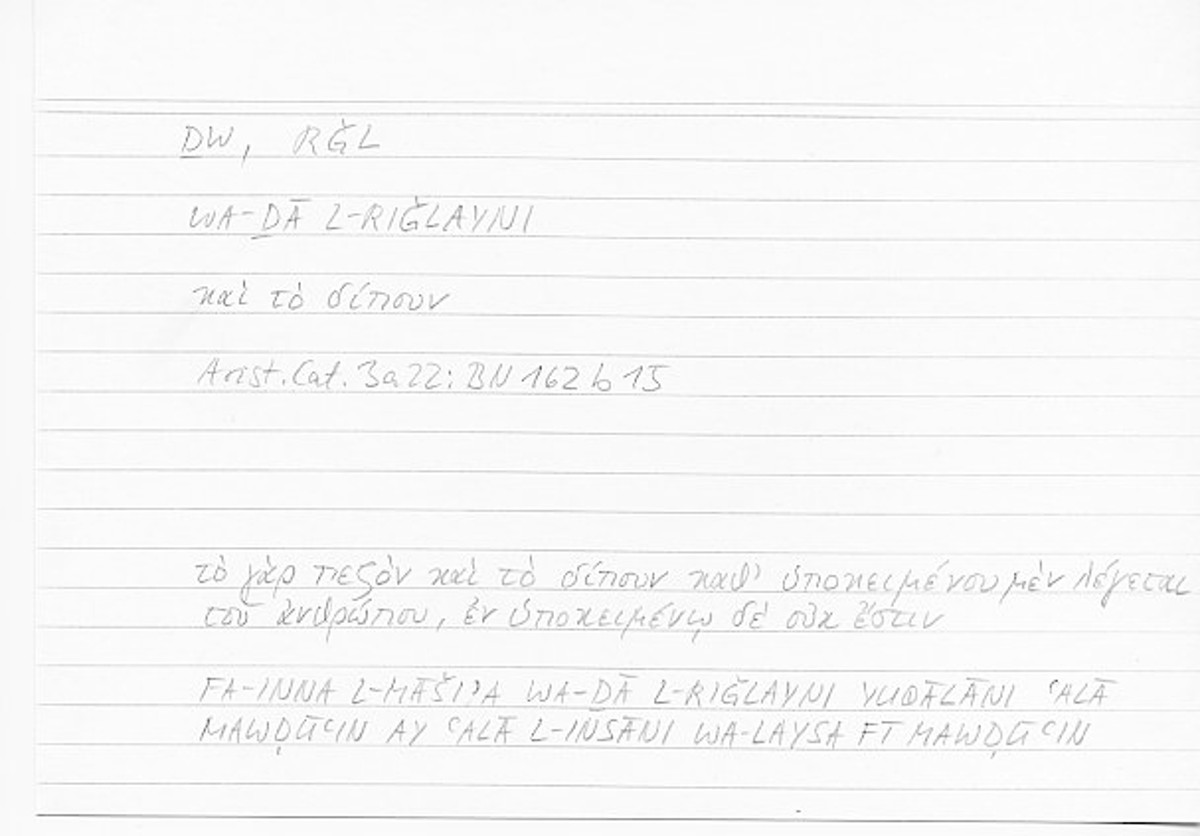 ḎW, RǦL
WA-ḎĀ L-RIǦLAYNI
καὶ τὸ δίπουν
Arist. Cat. 3a22; BN 162 b 15
τὸ γὰρ πεζὸν καὶ τὸ δίπουν καθ' ὑποκειμένου μὲν λέγεται
τοῦ ἀνθρώπου, ἐν ὑποκειμένῳ δὲ οὐκ ἔστιν
FA-INNA L-MĀŠIʾA WA-ḎĀ L-RIǦLAYNI YUQĀLĀNI ʿALĀ
MAWḌŪʿIN AY ʿALĀ L-INSĀNI WA-LAYSA FĪ MAWḌŪʿIN